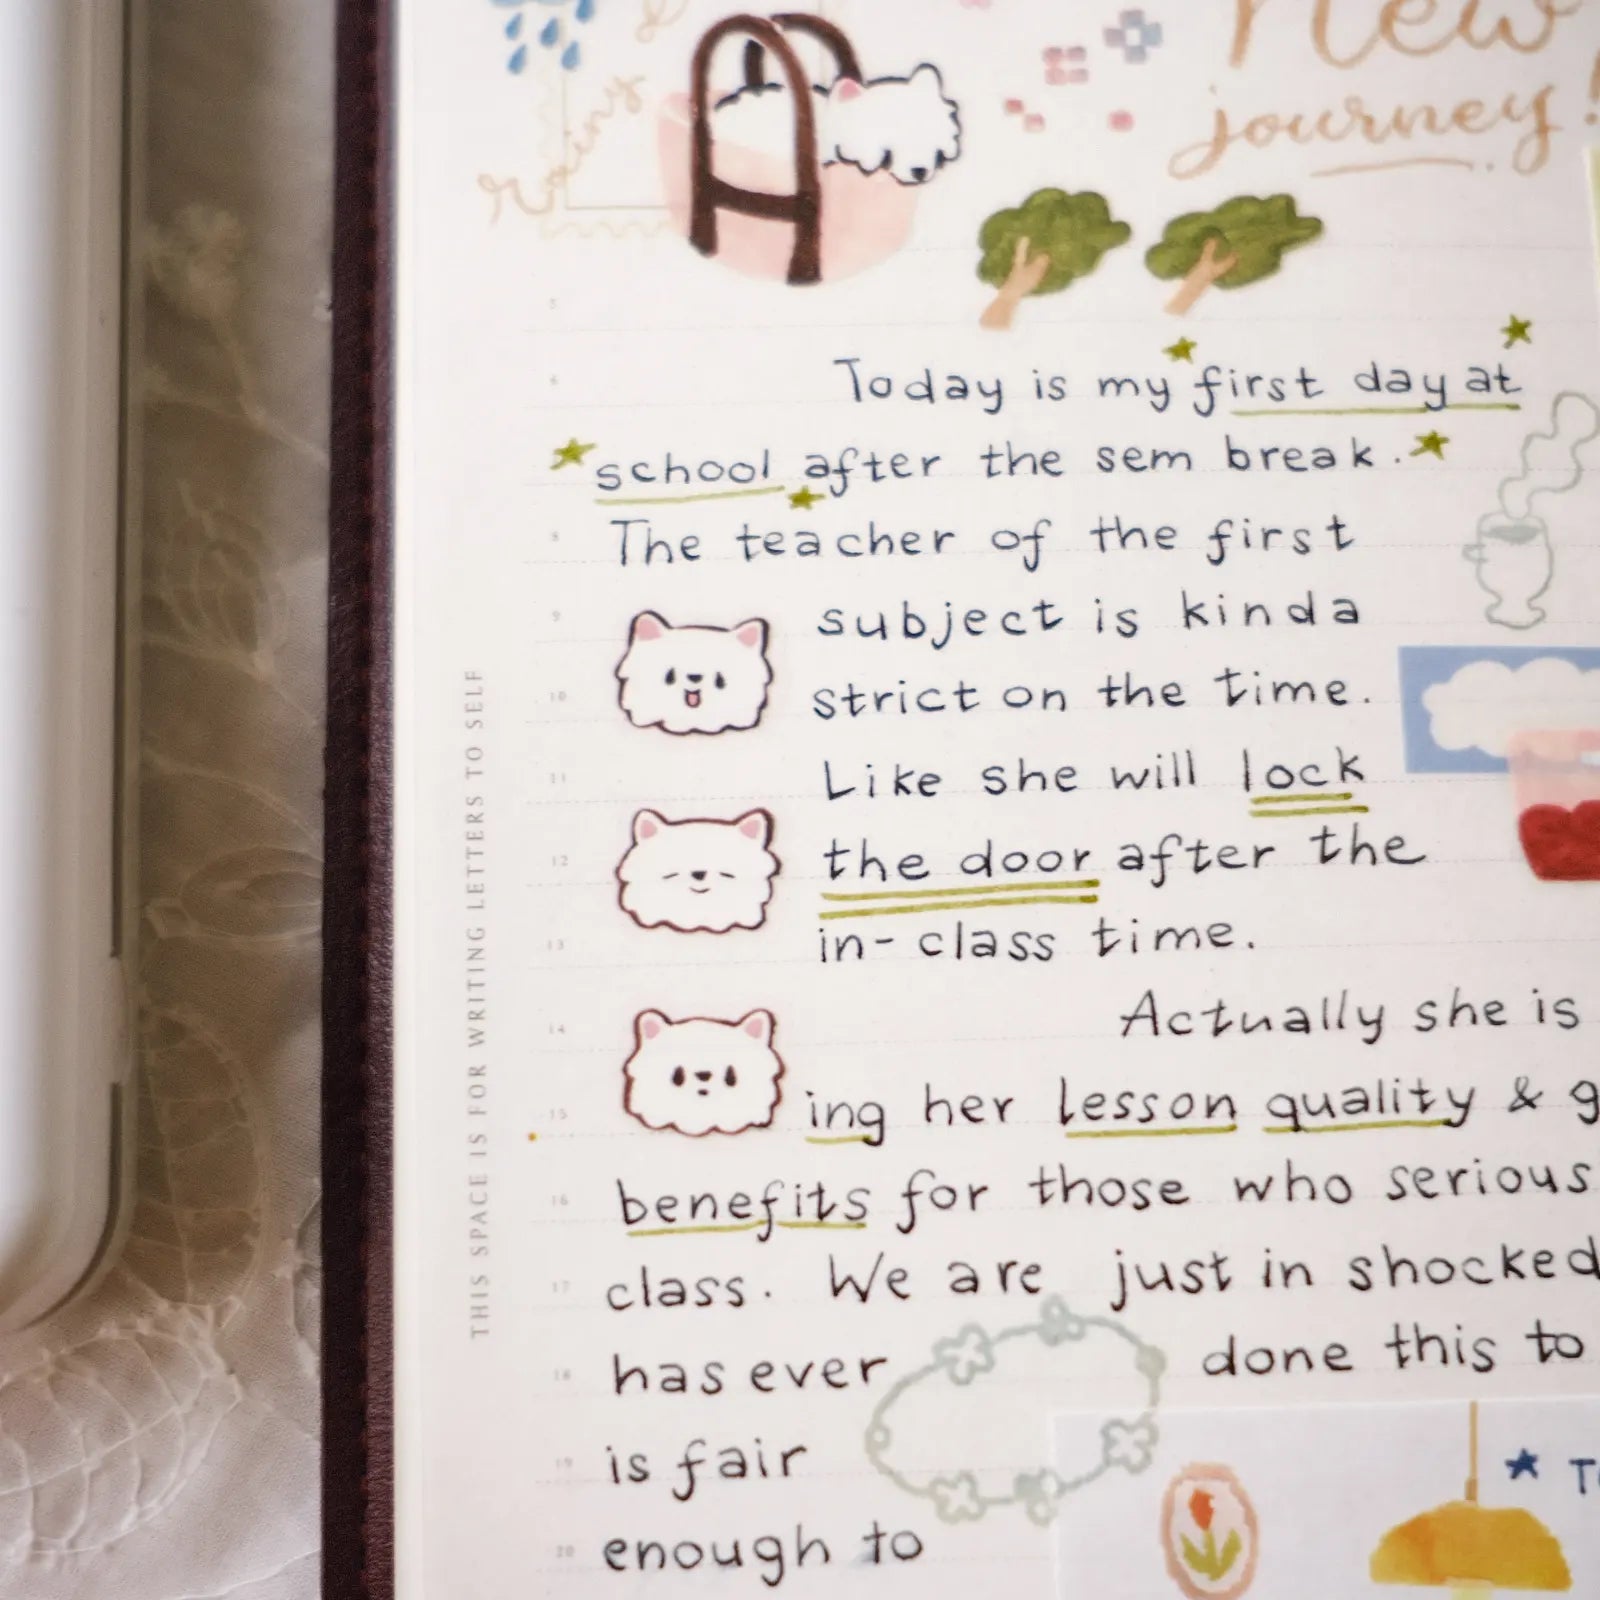 New
journey!
rainy
5
6
Today is my first day at
school after the sem break.
8
The teacher of the first
9
subject is kinda
10
strict on the time.
11
Like she will lock
12
the door after the
13
in-class time.
14
Actually she is
15
ing her lesson quality & g
16
benefits for those who serious
17
class. We are just in shocked
18
has ever done this to
19
is fair
20
enough to
THIS SPACE IS FOR WRITING LETTERS TO SELF